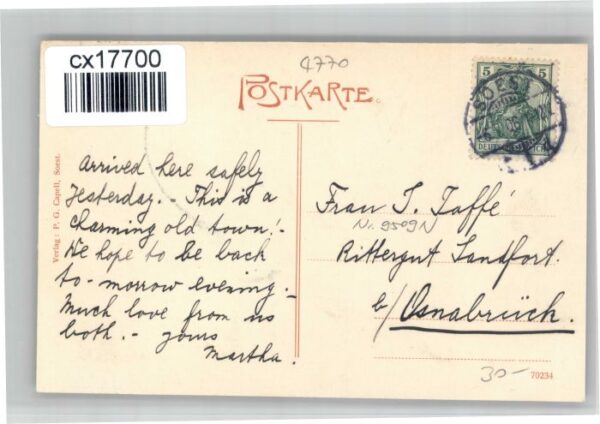 cx17700
4770
POSTKARTE.
5 5
SOEST
DEUTSCHES REICH
Verlag: P. G. Capell, Soest.
Arrived here safely
Yesterday. - This is a
charming old town! -
We hope to be back
to-morrow evening. -
Much love from us
both. - yours
Martha.
Frau S. Jaffé
Nr. 9509N
Rittergut Sandfort.
b/ Osnabrück.
30-
70234